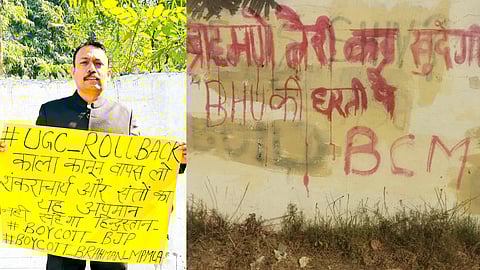 #UGC_ROLLBACK
काला कानून वापस लो
शंकराचार्य और संतों का
यह अपमान
नहीं सहेगा हिन्दुस्तान-
#BOYCOTT_BJP
#BOYCOTT_BRAHMAN_MPMLA
ब्राह्मणों तेरी कब्र खुदेगी
BHU की धरती पे
BCM